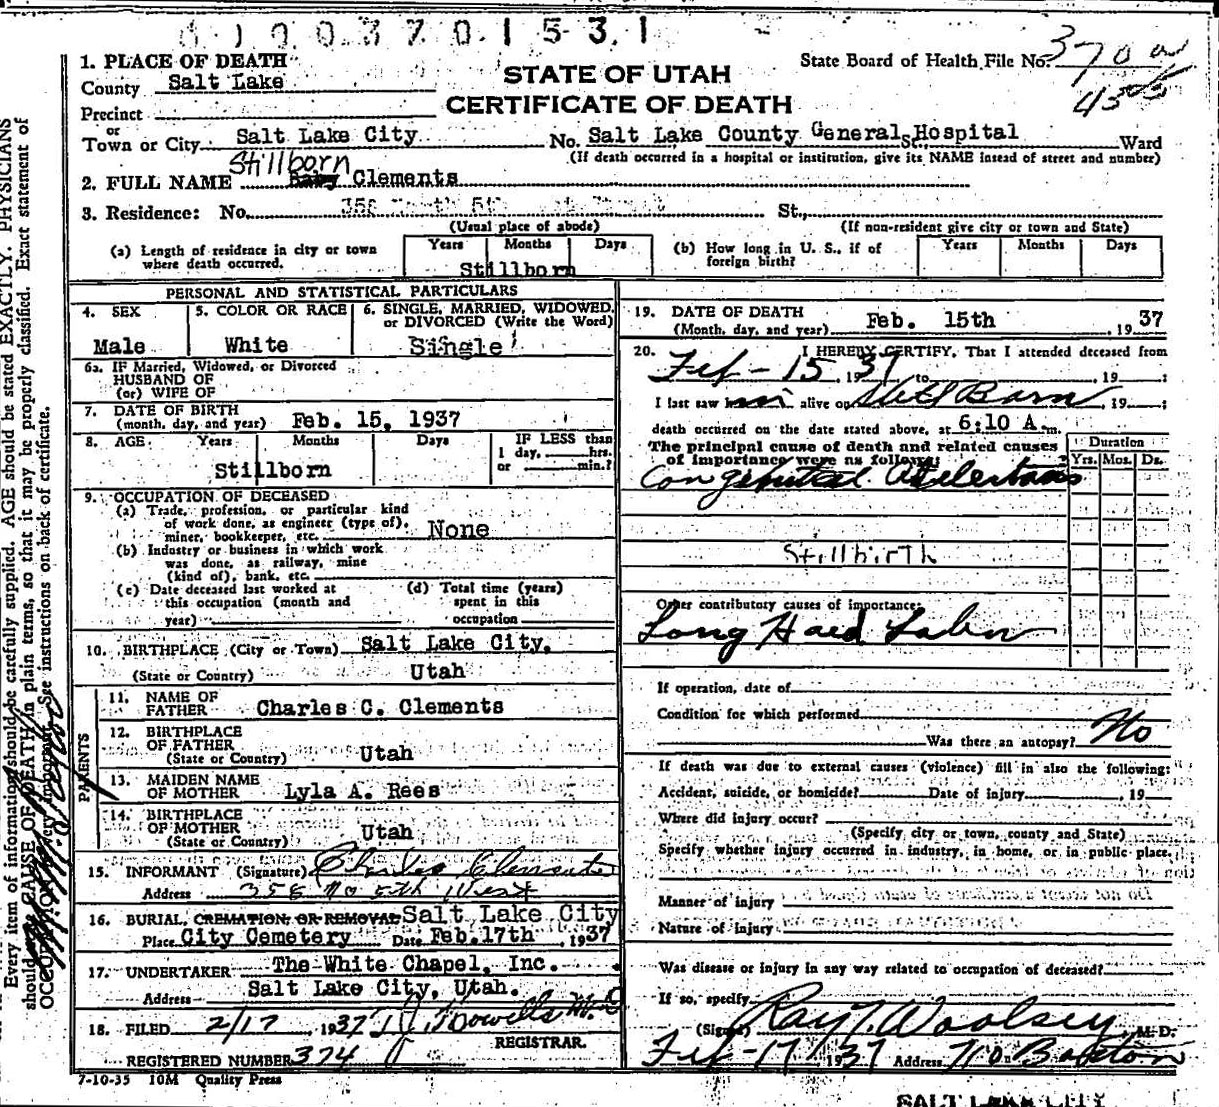 0100370 1531
1. PLACE OF DEATH
County Salt Lake
STATE OF UTAH
CERTIFICATE OF DEATH
State Board of Health File No. 370
Precinct
or
Town or City Salt Lake City No. Salt Lake County General St., Hospital Ward
(If death occurred in a hospital or institution, give its NAME instead of street and number)
Stillborn
2. FULL NAME Baby Clements
3. Residence: No. 358 St.,
(Usual place of abode) (If non-resident give city or town and State)
(a) Length of residence in city or town where death occurred. Years Months Days
Stillborn
(b) How long in U. S., if of foreign birth? Years Months Days
PERSONAL AND STATISTICAL PARTICULARS
4. SEX 5. COLOR OR RACE 6. SINGLE, MARRIED, WIDOWED, or DIVORCED (Write the Word)
Male White Single
6a. IF Married, Widowed, or Divorced
HUSBAND OF
(or) WIFE OF
7. DATE OF BIRTH
(month, day, and year) Feb. 15, 1937
8. AGE Years Months Days IF LESS than
1 day, hrs.
or min.?
Stillborn
9. OCCUPATION OF DECEASED
(a) Trade, profession, or particular kind
of work done, as engineer (type of),
miner, bookkeeper, etc. None
(b) Industry or business in which work
was done, as railway, mine
(kind of), bank, etc.
(c) Date deceased last worked at
this occupation (month and
year)
(d) Total time (years)
spent in this
occupation
10. BIRTHPLACE (City or Town) Salt Lake City,
(State or Country) Utah
PARENTS
11. NAME OF
FATHER Charles C. Clements
12. BIRTHPLACE
OF FATHER
(State or Country) Utah
13. MAIDEN NAME
OF MOTHER Lyla A. Rees
14. BIRTHPLACE
OF MOTHER
(State or Country) Utah
15. INFORMANT (Signature) Charles Clements
Address 358 No 5th West
16. BURIAL, CREMATION OR REMOVAL Salt Lake City
Place City Cemetery Date Feb. 17th, 1937
17. UNDERTAKER The White Chapel, Inc.
Address Salt Lake City, Utah.
18. FILED 2/17 1937
REGISTRAR.
REGISTERED NUMBER 374
7-10-35 10M Quality Press
19. DATE OF DEATH
(Month, day, and year) Feb. 15th, 1937
20. I HEREBY CERTIFY, That I attended deceased from
Feb - 15, 1937 to , 19 ;
I last saw him alive on Still Born, 19 ;
death occurred on the date stated above, at 6:10 A.m.
The principal cause of death and related causes
of importance were as follows:
Duration
Yrs. Mos. Ds.
Congenital Atelectasis
Stillbirth
Other contributory causes of importance:
Long Hard Labor
If operation, date of
Condition for which performed
Was there an autopsy? No
If death was due to external causes (violence) fill in also the following:
Accident, suicide, or homicide? Date of injury , 19
Where did injury occur?
(Specify city or town, county and State)
Specify whether injury occurred in industry, in home, or in public place.
Manner of injury
Nature of injury
Was disease or injury in any way related to occupation of deceased?
If so, specify
(Signed) Ray T. Woolsey, M. D.
Feb - 17, 1937 Address 710 Boston
SALT LAKE CITY
Every item of information should be carefully supplied. AGE should be stated EXACTLY. PHYSICIANS
should state CAUSE OF DEATH in plain terms, so that it may be properly classified. Exact statement of
OCCUPATION is very important. See instructions on back of certificate.